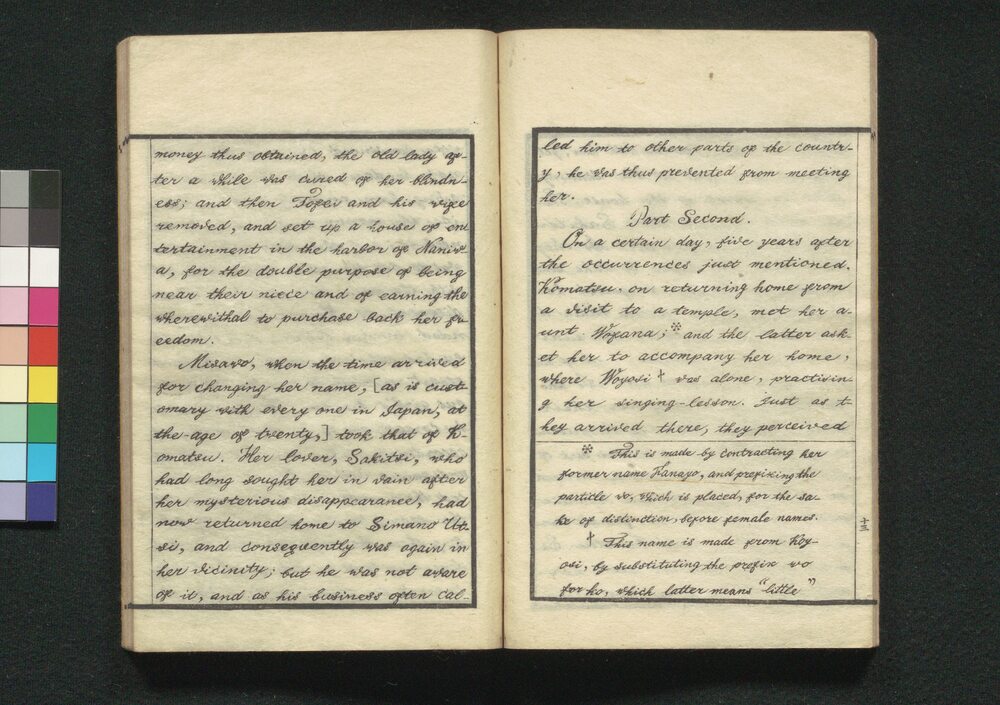 money thus obtained, the old lady af-
ter a while was cured of her blindn-
ess; and then Tofei and his wife
removed, and set up a house of en
tertainment in the harbor of Naniw
a, for the double purpose of being
near their niece and of earning the
wherewithal to purchase back her fr-
eedom.
Misawo, when the time arrived
for changing her name, [as is cust-
omary with every one in Japan, at
the age of twenty,] took that of K-
omatsu. Her lover, Sakitsi, who
had long sought her in vain after
her mysterious disappearance, had
now returned home to Simano Ut-
si, and consequently was again in
her vicinity; but he was not aware
of it, and as his business often cal-
led him to other parts of the countr-
y, he was thus prevented from meeting
her.
Part Second.
On a certain day, five years after
the occurrences just mentioned,
Komatsu, on returning home from
a visit to a temple, met her a-
unt Wofana;※ and the latter ask-
et her to accompany her home,
where Woyosi † was alone, practisin-
g her singing-lesson. Just as t-
hey arrived there, they perceived
※ This is made by contracting her
former name Fanayo, and prefixing the
particle wo, which is placed, for the sa-
ke of distinction, before female names.
† This name is made from Koy-
osi, by substituting the prefix wo
for ko, which latter means "little"
十三